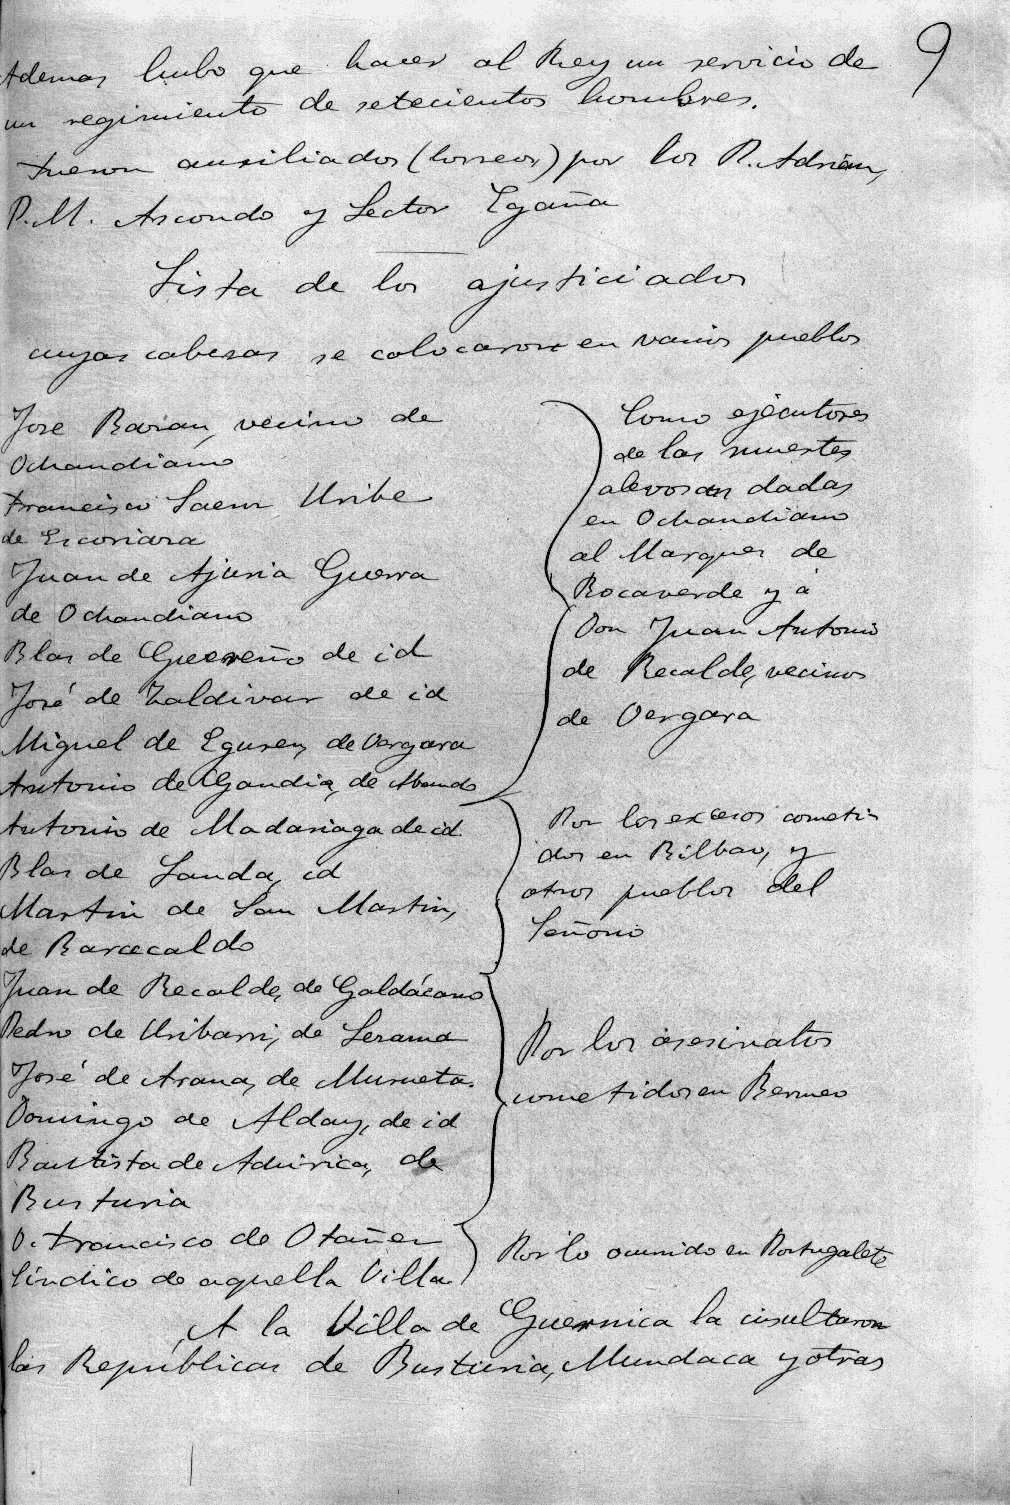 9
Ademas hubo que hacer al Rey un servicio de
un regimiento de setecientos hombres.
Fueron auxiliados (los reos) por los P. Adrian,
P. M. Ascondo y Lector Egaña
Lista de los ajusticiados
cuyas cabezas se colocaron en varios pueblos
Jose Barian, vecino de
Ochandiano
Francisco Saenz Uribe
de Escoriaza
Juan de Ajuria Guerra
de Ochandiano
Blas de Guereño de id
José de Zaldivar de id
Miguel de Eguren, de Vergara
Como ejécutores
de las muertes
alevosas dadas
en Ochandiano
al Marques de
Rocaverde y á
Don Juan Antonio
de Recalde, vecinos
de Vergara
Antonio de Gandia, de Abando
Antonio de Madariaga de id
Blas de Landa, id
Martin de San Martin,
de Baracaldo
Por los excesos cometi-
dos en Bilbao, y
otros pueblos del
Señorio
Juan de Recalde, de Galdácano
Pedro de Uribarri, de Lezama
José de Arana, de Murueta.
Domingo de Alday, de id
Bautista de Adurica, de
Busturia
Por los asesinatos
cometidos en Bermeo
D. Francisco de Otañez
Síndico de aquella Villa
Por lo ocurrido en Portugalete
A la Villa de Guernica la insultaron
las Repúblicas de Busturia, Mundaca y otras